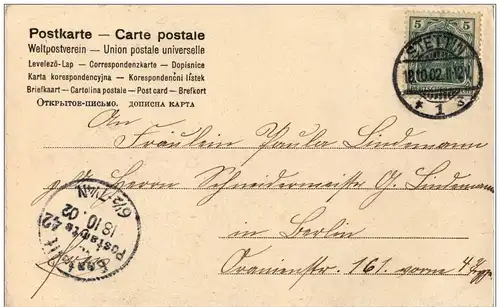 Postkarte — Carte postale
Weltpostverein — Union postale universelle
Levelező-Lap — Correspondenzkarte — Dopisnice
Karta korespondencyjna — Korespondenční lístek
Briefkaart — Cartolina postale — Post card — Brefkort
Открытое-письмо. дописна карта
5 5
STETTIN
18.10.02.11-12V.
* 1 s
An
Fräulein Paula Lindemann
Herrn Schneidermeister G. Lindemann
in Berlin
Oranienstr. 161. vorn 4
Bestellt
Postamte 42
18 10 02
6½-7¼N